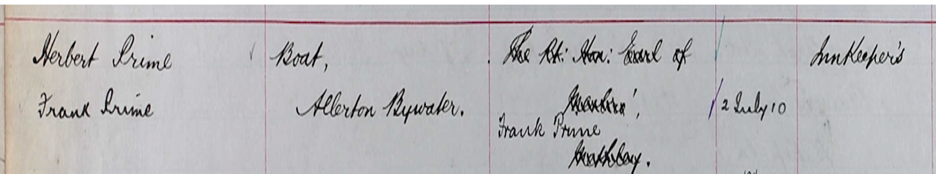 Herbert Prime Boat, The Rt: Hon: Earl of InnKeeper's
Frank Prime Allerton Bywater. 2 July 10
Frank Prime
Methley.